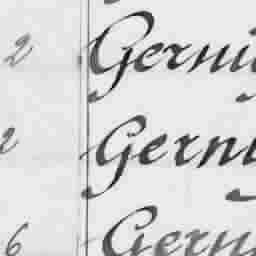 2 Gerni
2 Gerni
6 Gern